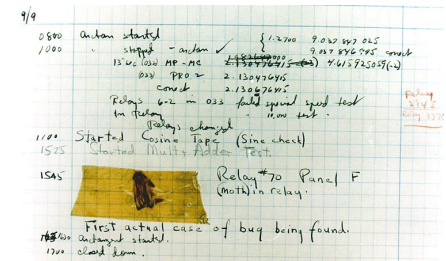 9/9
0800 Antan started { 1.2700 9.037 847 025
1000 " stopped - antan ✓ 9.037 846 995 conect
13" uc (033) MP - MC 2.130476415 4.615925059(-2)
(033) PRO 2 2.130476415
conect 2.130676415
Relays 6-2 in 033 failed special speed test
In Relay " 10,000 test.
Relays changed
Relay
2145
Relay 3370
1100 Started Cosine Tape (Sine check)
1525 Started Mult+ Adder Test.
1545 Relay #70 Panel F
(moth) in relay.
First actual case of bug being found.
1630 Antangent started.
1700 closed down.